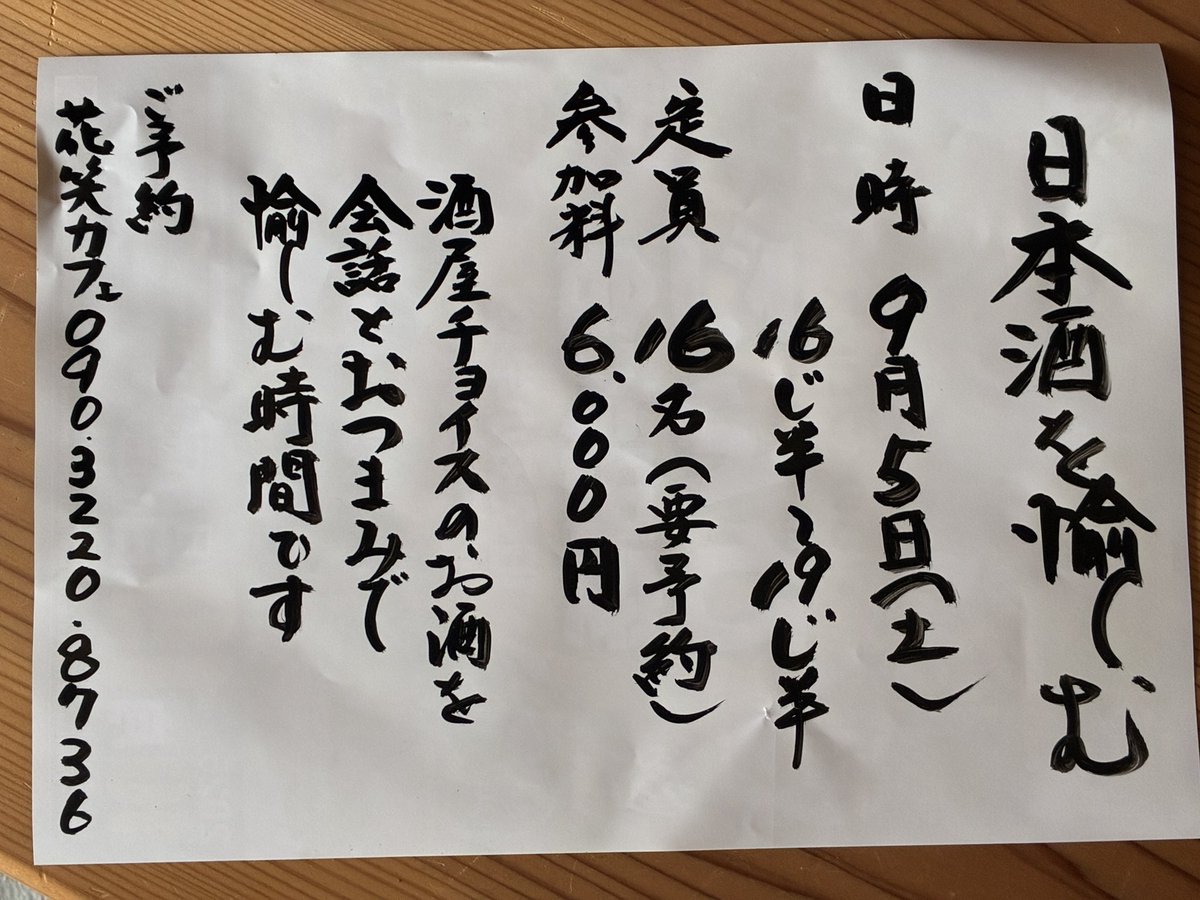 日本酒を愉しむ
日時 9月5日(土)
16じ半〜19じ半
定員 16名(要予約)
参加料 6.000円
酒屋チョイスのお酒を
会話とおつまみで
愉しむ時間です
ご予約
花笑カフェ090.3220.8736